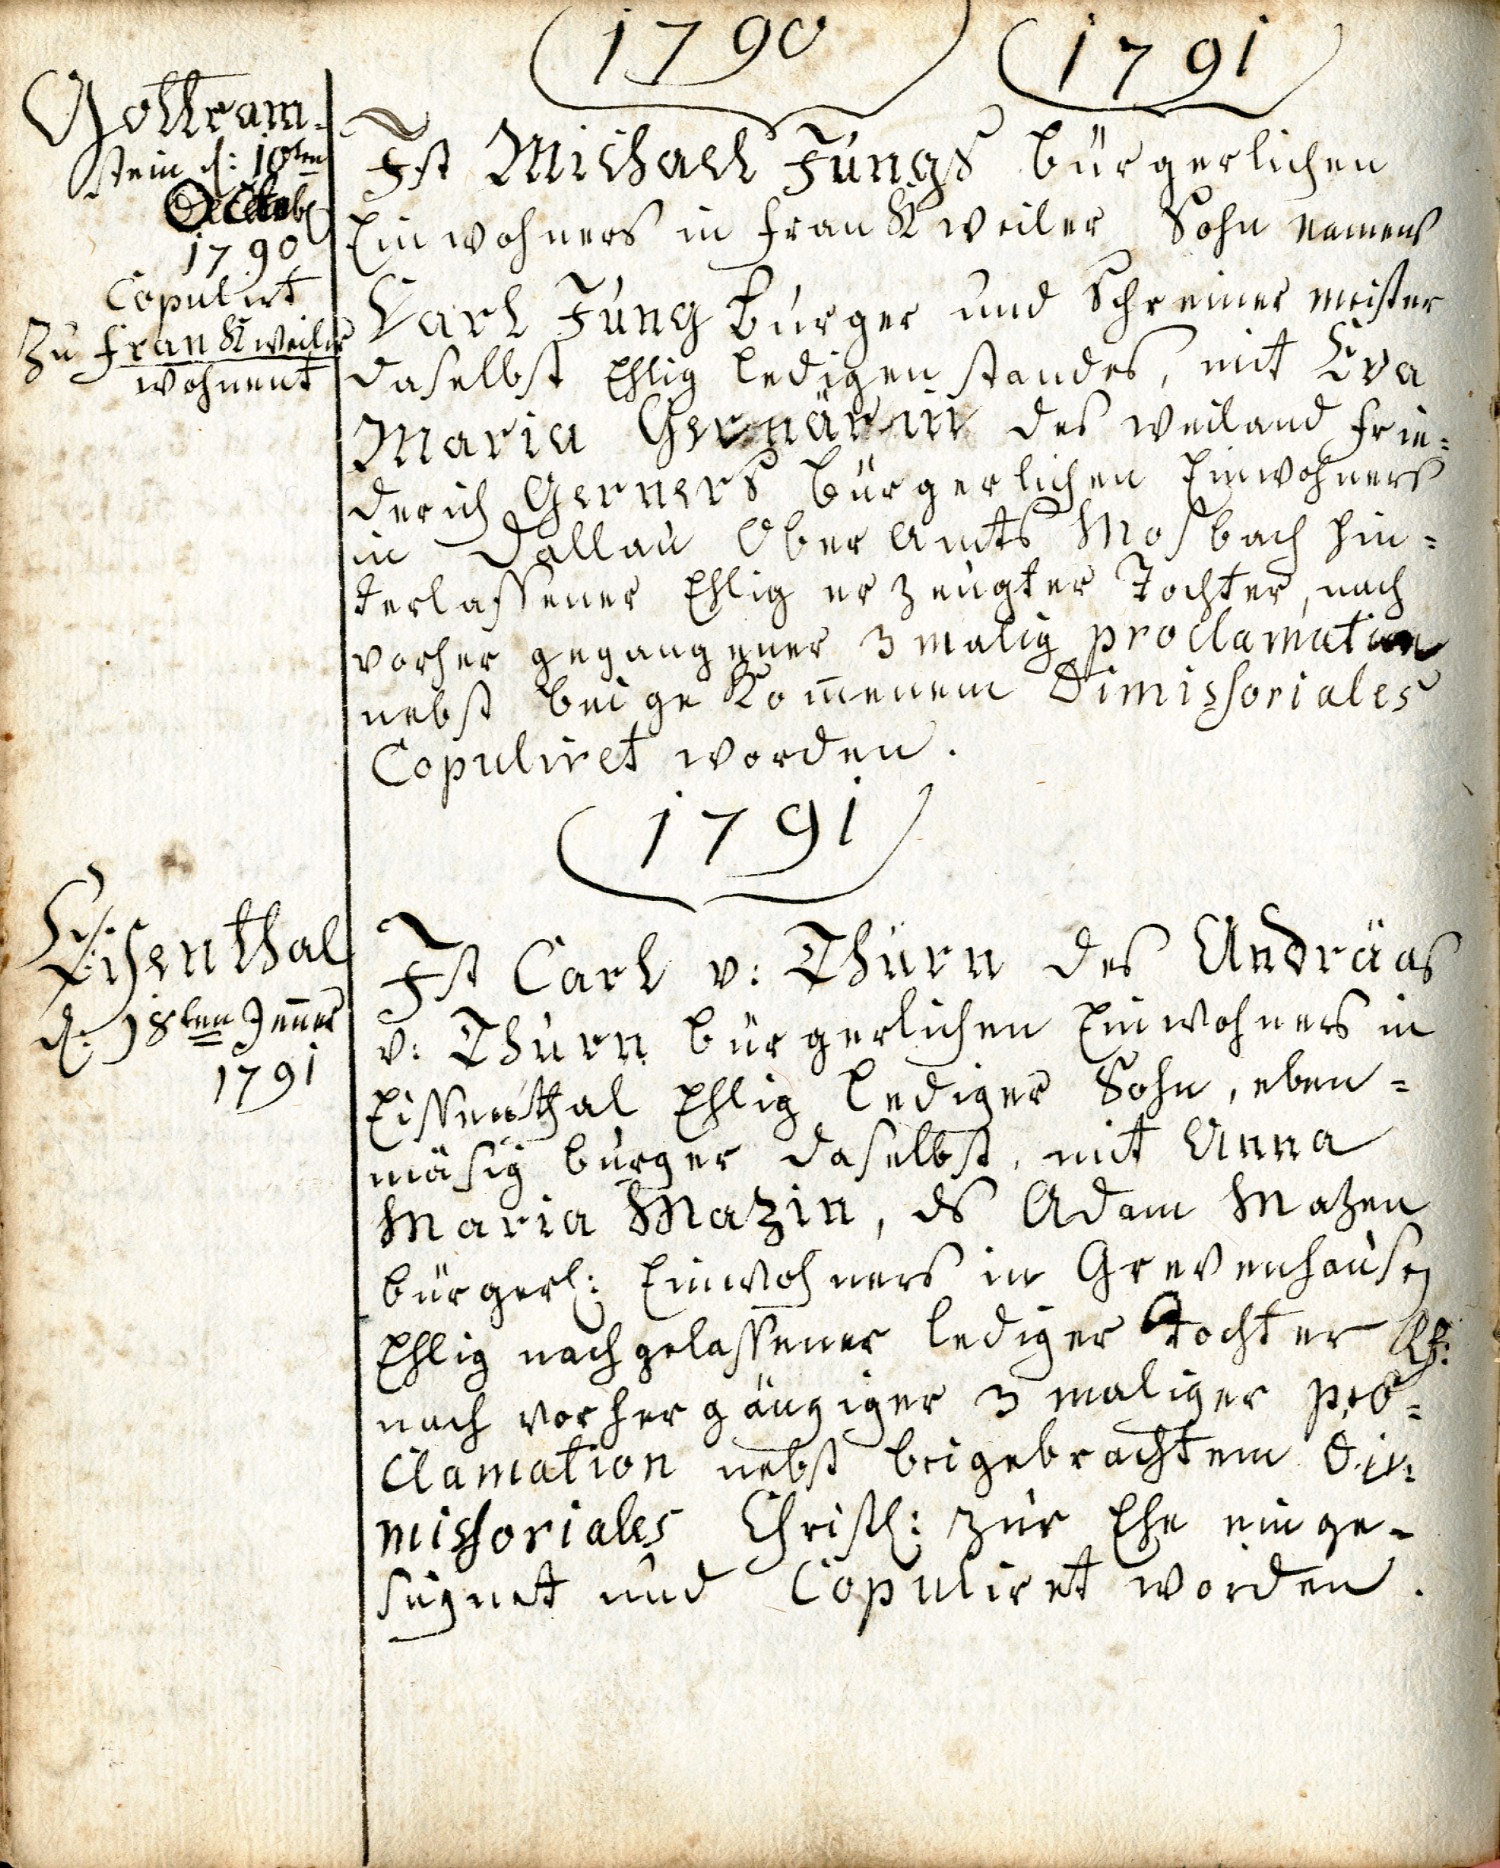 1790 1791
Gottram-
stein d: 10ten
Octob
1790
Copulirt
Zu Frankweiler
wohnent
Ist Michael Jungs bürgerlichen
Einwohners in Frankweiler Sohn Namens
Carl Jung burger und Schreiner meister
daselbst Ehlig ledigen standes, mit Eva
Maria Gernärin des weiland Frie=
derich Gerners bürgerlichen Einwohners
in Dallau Ober Amts Mosbach hin=
terlassener Ehlig erzeugter Tochter, nach
vorher gegangener 3 malig proclamation
nebst beigekom̄enem Dimissoriales
Copuliret worden.
1791
Eisenthal
d: 18ten Jen̄er
1791
Ist Carl v: Thurn des Andräas
v: Thurn bürgerlichen Einwohners in
Eissenthal Ehlig lediger Sohn, eben=
mäsig burger daselbst, mit Anna
Maria Mazin, ds Adam Mazen
bürgerl: Einwohners in Grevenhausen
Ehlig nachgelassener lediger tochter
nach vorhergängiger 3 maliger pro=
Clamation nebst beigebrachtem Di=
missoriales Christl: zur Ehe einge-
segnet und Copuliret worden.